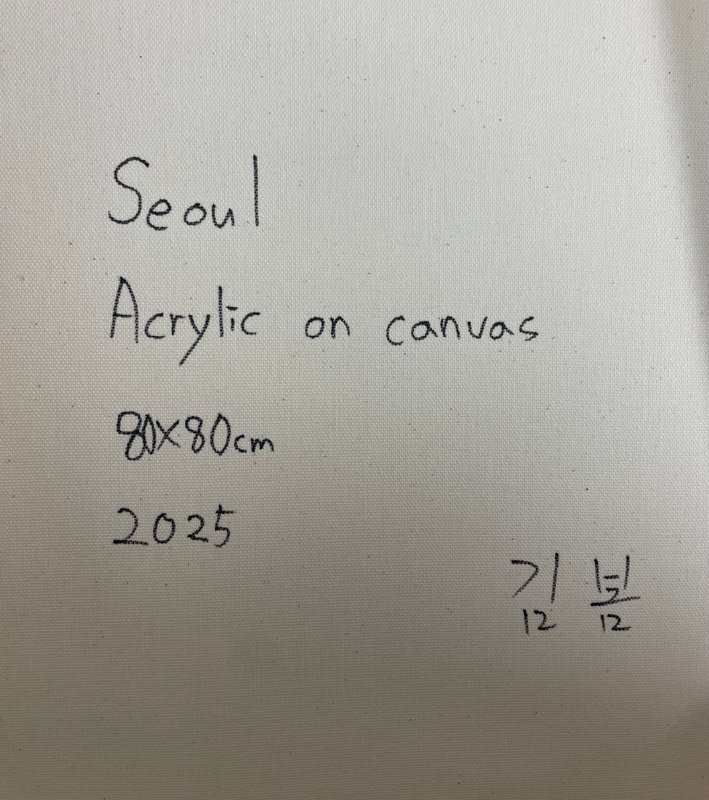 Seoul
Acrylic on canvas
80x80cm
2025
김 봄